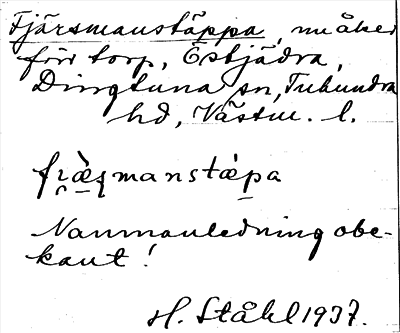 Fjärsmanstäppa, nu åker
förr torp, Östjädra,
Dingtuna sn, Tuhundra
hd, Västm. l.
fı̯æ̀ʂmanstæ̀pa
Namnanledning obe-
kant!
H. Ståhl 1937.